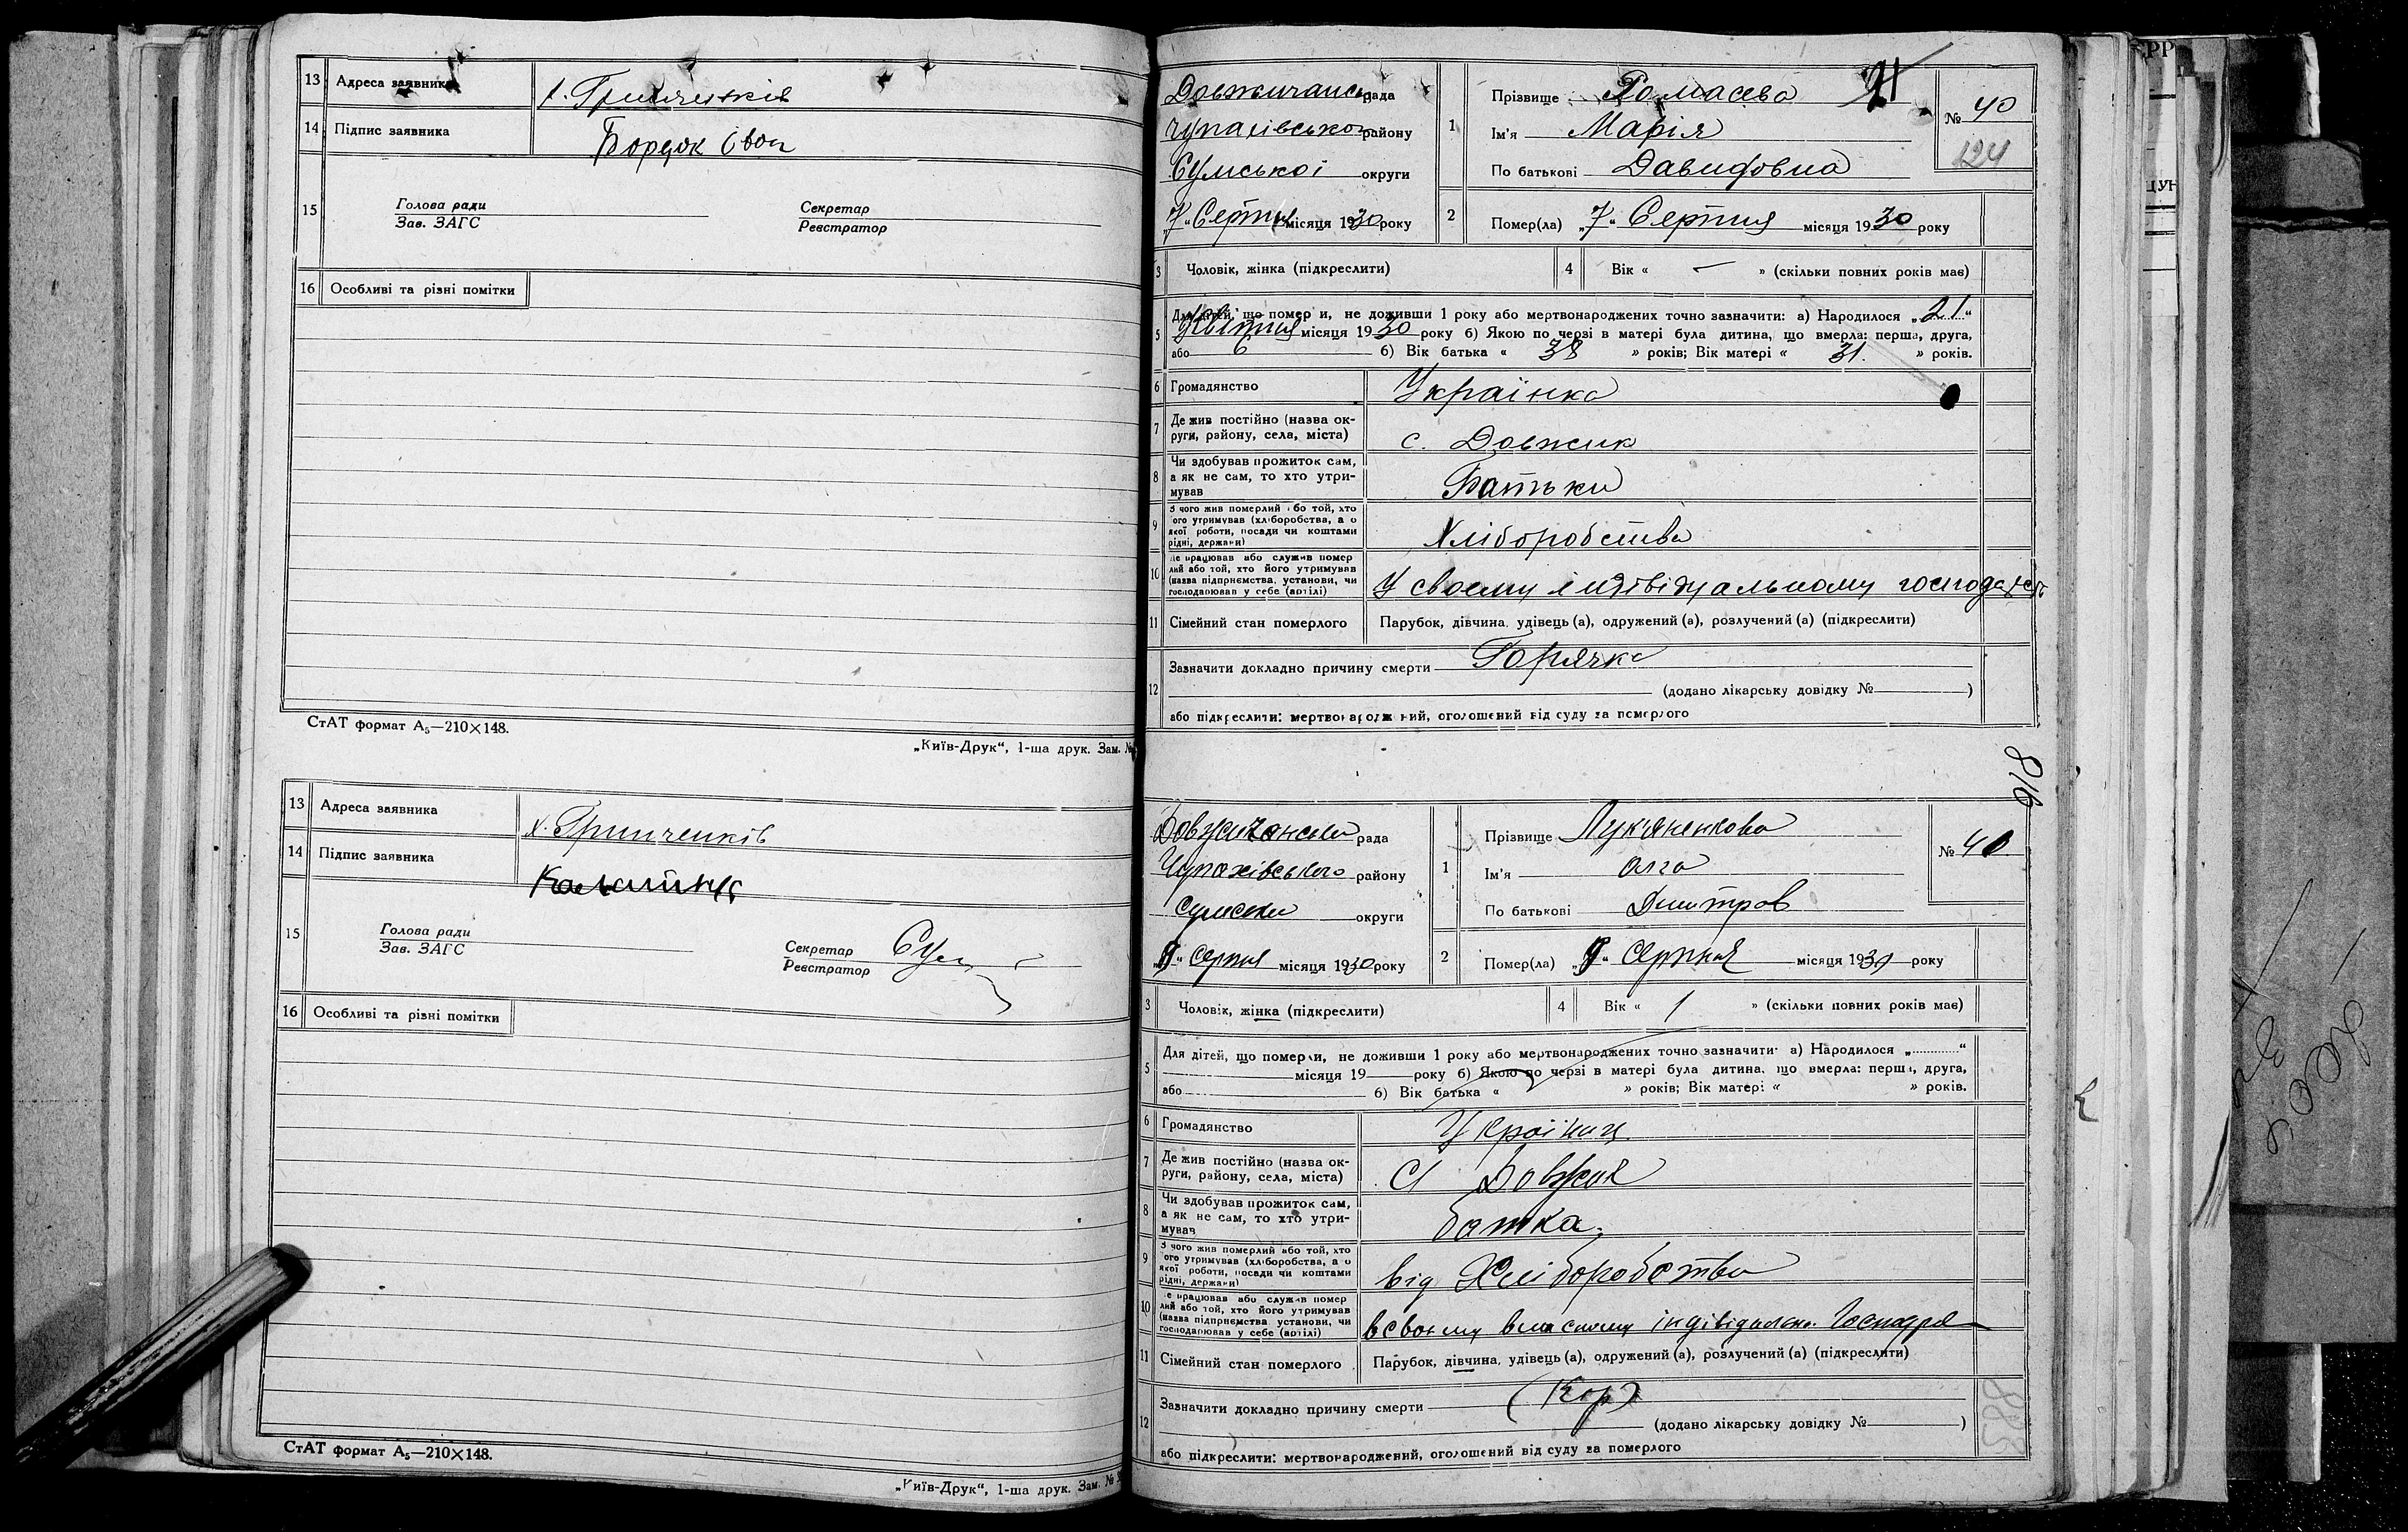 13 Адреса заявника х. Гринченків
14 Підпис заявника Бордюк
15 Голова ради Секретар
Зав. ЗАГС Реєстратор
16 Особливі та різні помітки
СтАТ формат А₅—210×148.
„Київ-Друк“, 1-ша друк. Зам. №
13 Адреса заявника х. Гринченків
14 Підпис заявника
15 Голова ради Секретар
Зав. ЗАГС Реєстратор
16 Особливі та різні помітки
СтАТ формат А₅—210×148.
„Київ-Друк“, 1-ша друк. Зам. №
Довжичанськ рада
Чупахівського району
Сумської округи
„7“ Серпня місяця 1930 року
1 Прізвище
Ім'я Марія
По батькові Давидовна
21
№ 40
124
2 Помер(ла) „7“ Серпня місяця 1930 року
3 Чоловік, жінка (підкреслити) 4 Вік « — » (скільки повних років має)
5 Для дітей, що померли, не доживши 1 року або мертвонароджених точно зазначити: а) Народилося „21“
Квітня місяця 1930 року б) Якою по черзі в матері була дитина, що вмерла: перша, друга,
або 6 б) Вік батька « 38 » років; Вік матері « 31. » років.
6 Громадянство Українка
7 Де жив постійно (назва округи, району, села, міста) с. Довжик
8 Чи здобував прожиток сам, а як не сам, то хто утримував Батьки
9 З чого жив померлий або той, хто його утримував (хліборобства, а о якої роботи, посади чи коштами рідні, держави) Хліборобства
10 Де працював або служив померлий або той, хто його утримував (назва підприємства, установи, чи господарював у себе (артілі) У своєму індівідуальному господарст
11 Сімейний стан померлого Парубок, дівчина, удівець (а), одружений (а), розлучений (а) (підкреслити)
12 Зазначити докладно причину смерти Горячка
(додано лікарську довідку № )
або підкреслити: мертвонароджений, оголошений від суду за померлого
816
Довжичанська рада
Чупахівського району
Сумська округи
серпня місяця 1930 року
1 Прізвище Лукяненкова
Ім'я Олга
По батькові Дмитров
№ 40
2 Помер(ла) серпня місяця 1930 року
3 Чоловік, жінка (підкреслити) 4 Вік « 1 » (скільки повних років має)
5 Для дітей, що померли, не доживши 1 року або мертвонароджених точно зазначити: а) Народилося „ “
місяця 19 року б) Якою по черзі в матері була дитина, що вмерла: перша, друга,
або б) Вік батька « » років; Вік матері « » років.
6 Громадянство
7 Де жив постійно (назва округи, району, села, міста) С Довжик
8 Чи здобував прожиток сам, а як не сам, то хто утримував батька.
9 З чого жив померлий або той, хто його утримував (хліборобства, а о якої роботи, посади чи коштами рідні, держави) від Хліборобства
10 Де працював або служив померлий або той, хто його утримував (назва підприємства, установи, чи господарював у себе (артілі) всвоєму власному
11 Сімейний стан померлого Парубок, дівчина, удівець (а), одружений (а), розлучений (а) (підкреслити)
12 Зазначити докладно причину смерти (Кор)
(додано лікарську довідку № )
або підкреслити: мертвонароджений, оголошений від суду за померлого